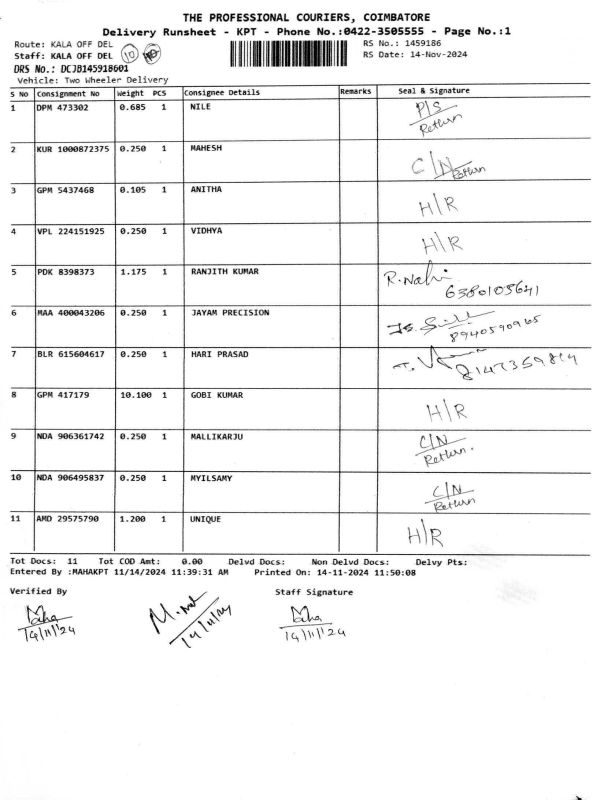 THE PROFESSIONAL COURIERS, COIMBATORE
Delivery Runsheet - KPT - Phone No.:0422-3505555 - Page No.:1
Route: KALA OFF DEL RS No.: 1459186
Staff: KALA OFF DEL 10 RS Date: 14-Nov-2024
DRS No.: DCJB145918601
Vehicle: Two Wheeler Delivery
S No Consignment No Weight PCS Consignee Details Remarks Seal & Signature
1 DPM 473302 0.685 1 NILE P/S
Return
2 KUR 1000872375 0.250 1 MAHESH C/N Return
3 GPM 5437468 0.105 1 ANITHA H/R
4 VPL 224151925 0.250 1 VIDHYA H/R
5 PDK 8398373 1.175 1 RANJITH KUMAR
6380103641
6 MAA 400043206 0.250 1 JAYAM PRECISION
8940590965
7 BLR 615604617 0.250 1 HARI PRASAD
8 GPM 417179 10.100 1 GOBI KUMAR H/R
9 NDA 906361742 0.250 1 MALLIKARJU C/N
Return.
10 NDA 906495837 0.250 1 MYILSAMY C/N
Return
11 AMD 29575790 1.200 1 UNIQUE H/R
Tot Docs: 11 Tot COD Amt: 0.00 Delvd Docs: Non Delvd Docs: Delvy Pts:
Entered By :MAHAKPT 11/14/2024 11:39:31 AM Printed On: 14-11-2024 11:50:08
Verified By Staff Signature
Maha Maha
14/11/24 14/11/24 14/11/24